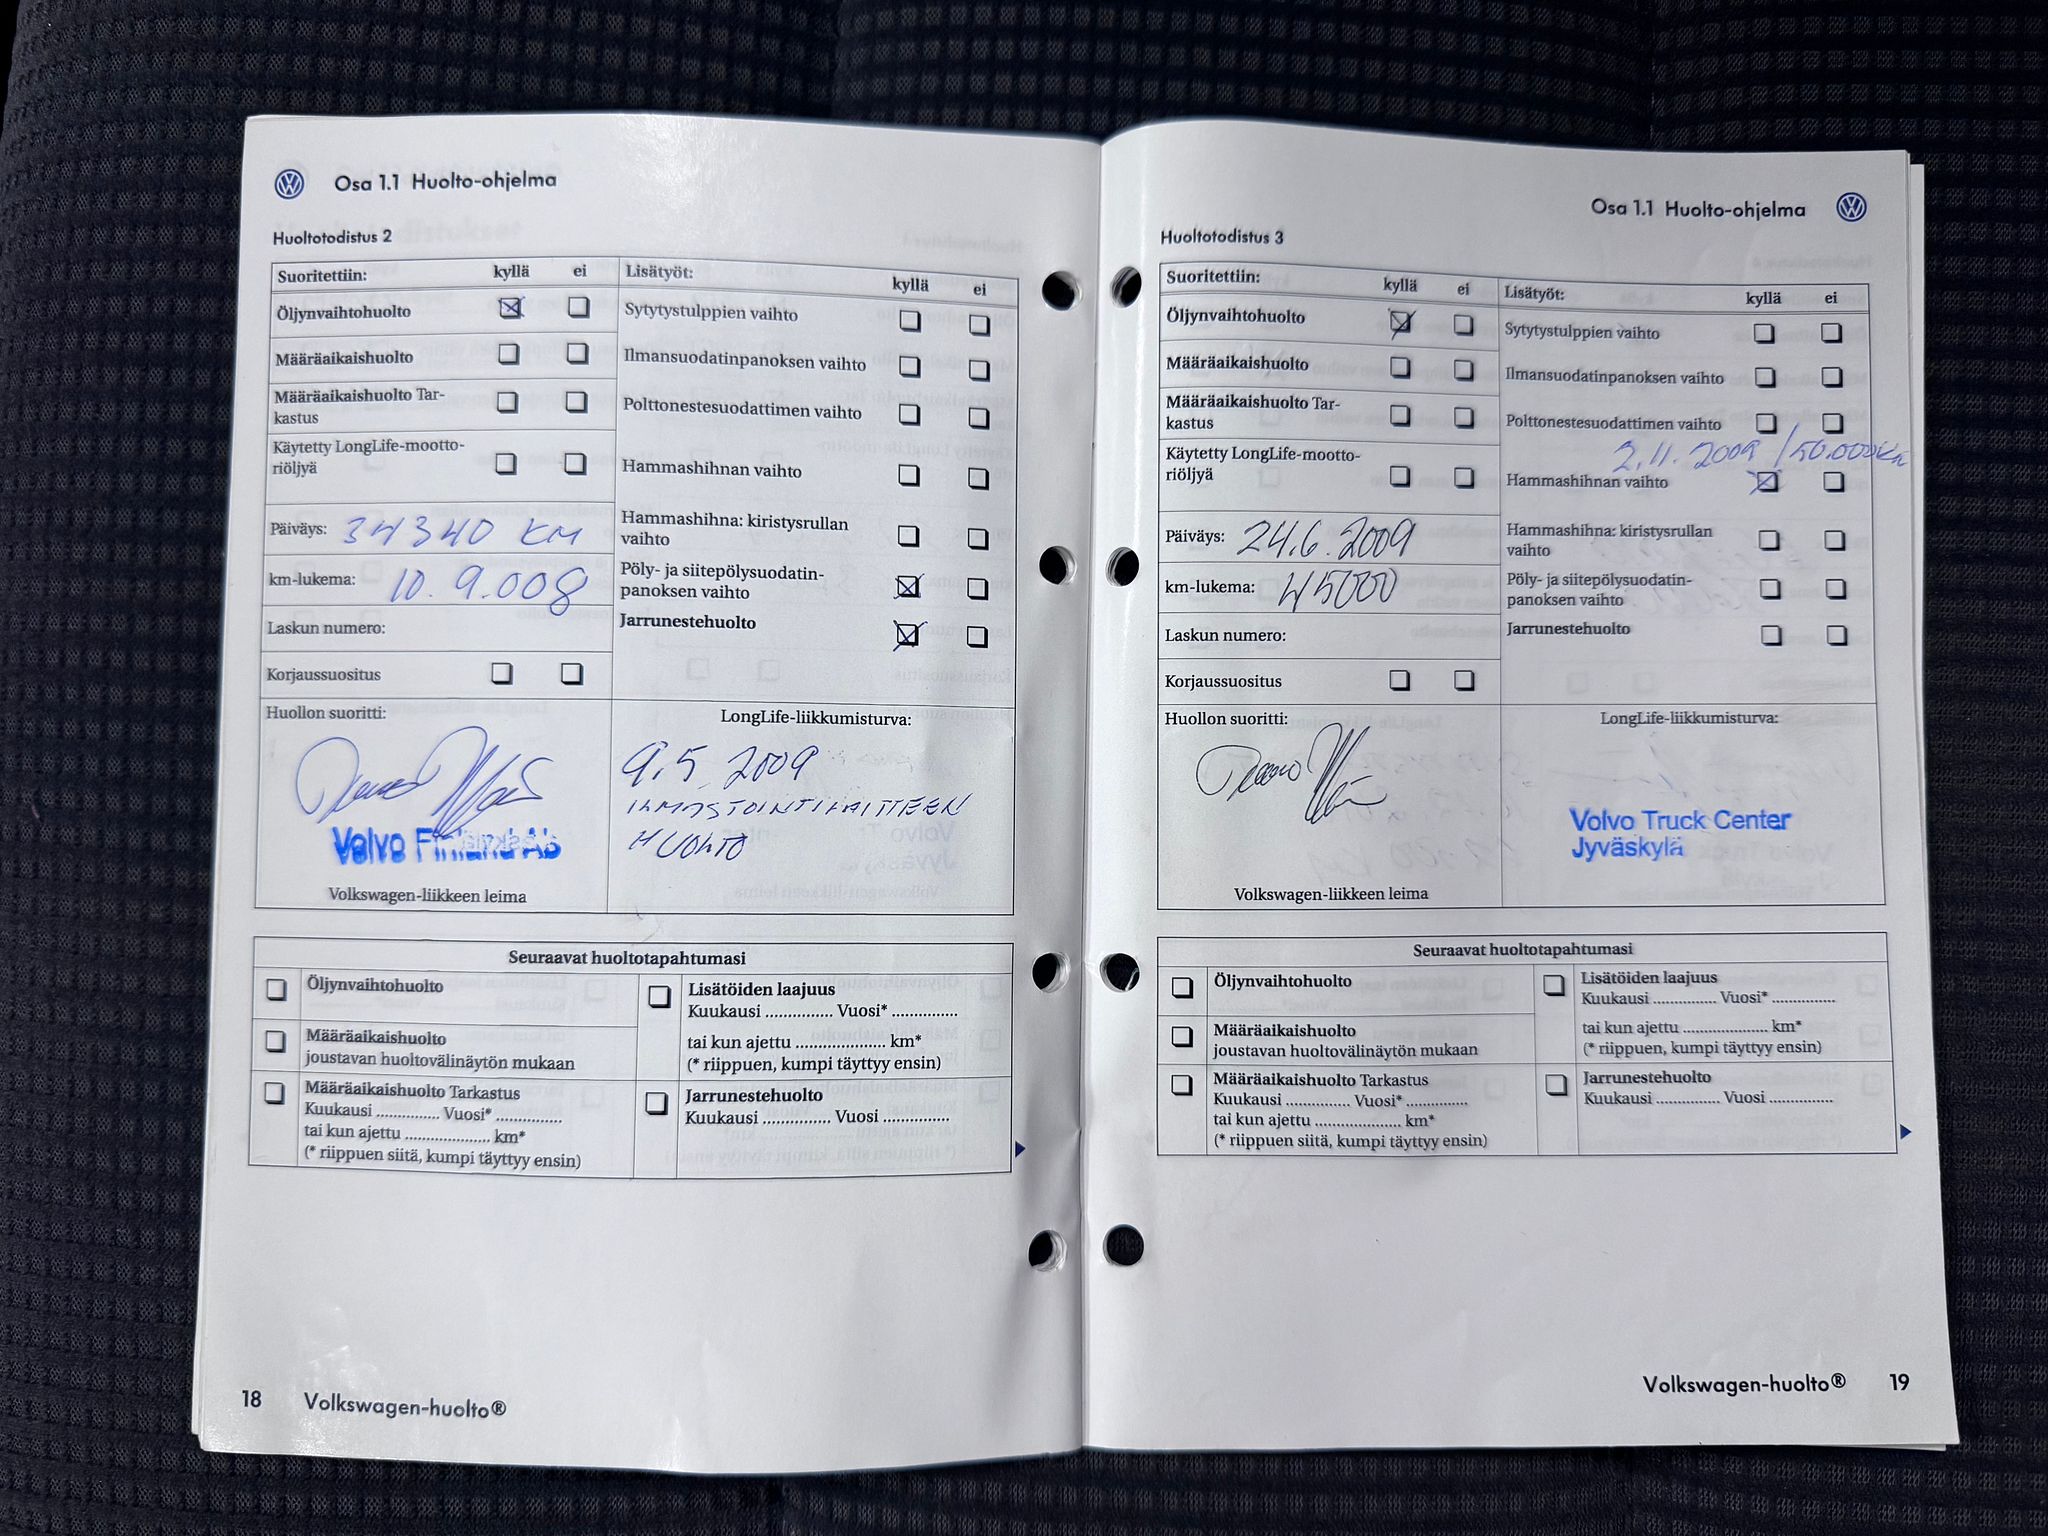 Osa 1.1 Huolto-ohjelma
Huoltotodistus 2
Suoritettiin: kyllä ei
Öljynvaihtohuolto
Määräaikaishuolto
Määräaikaishuolto Tar-
kastus
Käytetty LongLife-mootto-
riöljyä
Päiväys: 34340 KM
km-lukema: 10.9.008
Laskun numero:
Korjaussuositus
Lisätyöt: kyllä ei
Sytytystulppien vaihto
Ilmansuodatinpanoksen vaihto
Polttonestesuodattimen vaihto
Hammashihnan vaihto
Hammashihna: kiristysrullan
vaihto
Pöly- ja siitepölysuodatin-
panoksen vaihto
Jarrunestehuolto
Huollon suoritti:
Volvo Finland Ab
Volkswagen-liikkeen leima
LongLife-liikkumisturva:
9.5 2009
ILMASTOINTILAITTEEN
HUOLTO
Seuraavat huoltotapahtumasi
Öljynvaihtohuolto
Määräaikaishuolto
joustavan huoltovälinäytön mukaan
Määräaikaishuolto Tarkastus
Kuukausi .............. Vuosi* ..............
tai kun ajettu ..................... km*
(* riippuen siitä, kumpi täyttyy ensin)
Lisätöiden laajuus
Kuukausi .............. Vuosi* ..............
tai kun ajettu ..................... km*
(* riippuen, kumpi täyttyy ensin)
Jarrunestehuolto
Kuukausi .............. Vuosi ..............
18 Volkswagen-huolto®
Osa 1.1 Huolto-ohjelma
Huoltotodistus 3
Suoritettiin: kyllä ei
Öljynvaihtohuolto
Määräaikaishuolto
Määräaikaishuolto Tar-
kastus
Käytetty LongLife-mootto-
riöljyä
Päiväys: 24.6.2009
km-lukema: 45000
Laskun numero:
Korjaussuositus
Lisätyöt: kyllä ei
Sytytystulppien vaihto
Ilmansuodatinpanoksen vaihto
Polttonestesuodattimen vaihto
2.11.2009 / 50.000km
Hammashihnan vaihto
Hammashihna: kiristysrullan
vaihto
Pöly- ja siitepölysuodatin-
panoksen vaihto
Jarrunestehuolto
Huollon suoritti:
Volkswagen-liikkeen leima
LongLife-liikkumisturva:
Volvo Truck Center
Jyväskylä
Seuraavat huoltotapahtumasi
Öljynvaihtohuolto
Määräaikaishuolto
joustavan huoltovälinäytön mukaan
Määräaikaishuolto Tarkastus
Kuukausi .............. Vuosi* ..............
tai kun ajettu ..................... km*
(* riippuen siitä, kumpi täyttyy ensin)
Lisätöiden laajuus
Kuukausi .............. Vuosi* ..............
tai kun ajettu ..................... km*
(* riippuen, kumpi täyttyy ensin)
Jarrunestehuolto
Kuukausi .............. Vuosi ..............
Volkswagen-huolto® 19